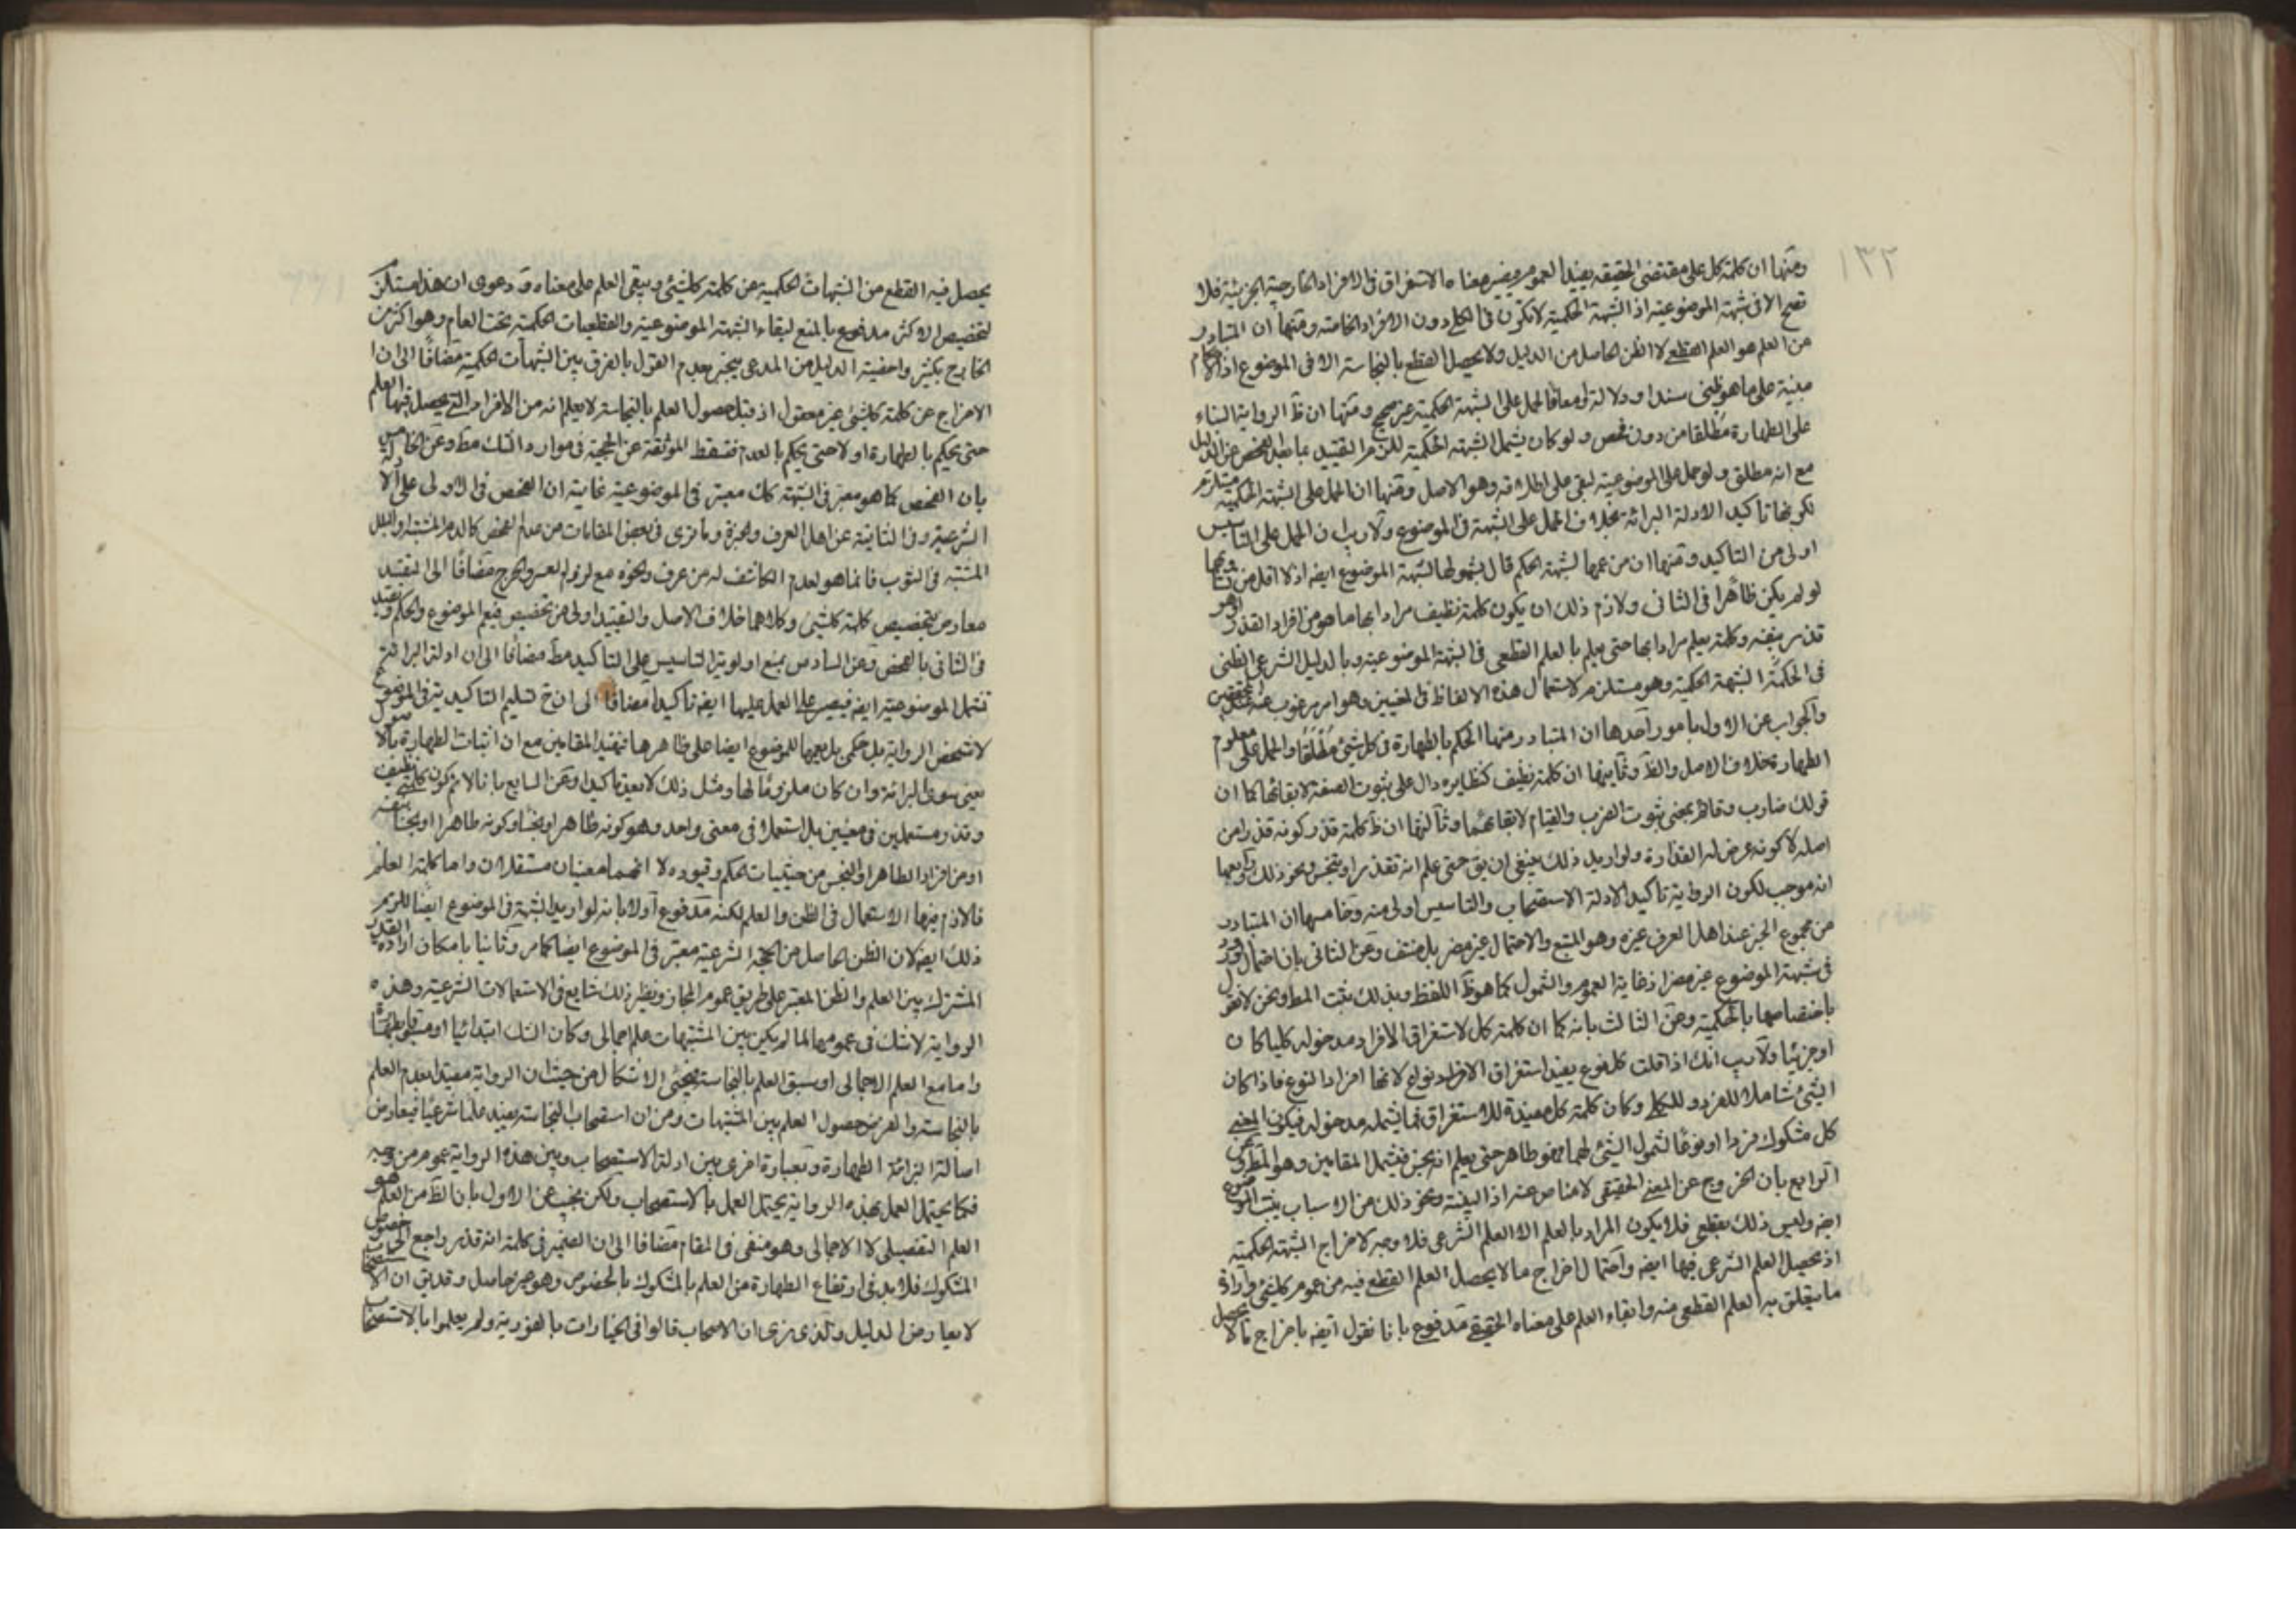 ١٣٢
ومنها ان كلمة كل على مقتضى الحقيقة يفيد العموم ويفيد معناه الاستغراق في الافراد الخارجية الجزئية فلا
تصح الا في شبهة الموضوعية اذ الشبهة الحكمية لا تكون في الكلي دون الافراد الخاصة ومنها ان المتبادر
من العلم هو العلم القطعي لا الظن الحاصل من الدليل ولا يحصل القطع بالنجاسة الا في الموضوع اذ الاحكام
مبنية على ما هو ظني سندا ودلالة او معا فالحمل على الشبهة الحكمية غير صحيح ومنها ان ظ الرواية البناء
على الطهارة مطلقا من دون فحص ولو كان يشمل الشبهة الحكمية للزم التقييد بما بعد الفحص عن الدليل
مع انه مطلق ولو حمل على الموضوعية لبقى على اطلاقه وهو الاصل ومنها ان الحمل على الشبهة الحكمية مستلزم
لكونها تاكيد الادلة البرائة بخلاف الحمل على الشبهة في الموضوع ولا ريب ان الحمل على التاسيس
اولى من التاكيد ومنها ان من عمها لشبهة الحكم قال بشمولها لشبهة الموضوع ايضه اذ لا اقل من تساويهما
لو لم يكن ظاهرا في الثاني ولازم ذلك ان يكون كلمة نظيف مرادا بها ما هو من افراد القذر او هو
قذر بنفسه وكلمة يعلم مرادا بها حتى يعلم بالعلم القطعي في الشبهة الموضوعية وبالدليل الشرعي الظني
في الحكمة الشبهة الحكمية وهو مستلزم لاستعمال هذه الالفاظ في المعنيين وهو امر مرغوب عنه عند المحققين
والجواب عن الاول بامور احدها ان المتبادر منها الحكم بالطهارة في كل شيء مطلقا والحمل على معلوم
الطهارة خلاف الاصل والظ وثانيها ان كلمة نظيف كنظايره دال على ثبوت الصفة لا بقائها كما ان
قولك ضارب وقائم بمعنى ثبوت الضرب والقيام لا بقائهما وثالثها ان ظ كلمة قذر كونه قذرا من
اصله لا كونه عرض له القذارة ولو اريد ذلك ينبغي ان يق حتى علم انه تقذر او تنجس ونحو ذلك ورابعها
انه موجب لكون الرواية تاكيد الادلة الاستصحاب والتاسيس اولى منه وخامسها ان المتبادر
من مجموع الخبر عند اهل العرف غيره وهو المتبع والاحتمال غير مضر بل منتف وعن الثاني بان احتمال ورود
في شبهة الموضوع غير مضر اذ غاية العموم والشمول كما هو ظ اللفظ وبذلك يثبت المط ونحن لا نقول
باختصاصها بالحكمية وعن الثالث بانه كما ان كلمة كل لاستغراق الافراد مدخوله كليا كان
او جزئيا ولا ريب انك اذا قلت كل نوع يفيد استغراق الافراد نوع لانها افراد النوع فاذا كان
الشيء شاملا للفرد وللكلي وكان كلمة كل مفيدة للاستغراق فما يشمله مدخوله فيكون المعنى
كل مشكوك فردا او نوعا لشمول الشيء لهما فهو طاهر حتى يعلم انه نجس فيشمل المقامين وهو المط وعن
الرابع بان الخروج عن المعنى الحقيقي لا مناص عنه اذ البينة ونحو ذلك من الاسباب يثبت الموضوع
ايضه وليس ذلك بقطعي فلا يكون المراد بالعلم الا العلم الشرعي فلا وجه لاخراج الشبهة الحكمية
اذ يحصل العلم الشرعي فيها ايضه واحتمال اخراج ما لا يحصل العلم القطعي فيه من عموم كلشيء وارادة
ما يتعلق به العلم القطعي منه وابقاء العلم على معناه الحقيقي مدفوع بانا نقول ايضه باخراج ما لا يحصل
يحصل فيه القطع من الشبهات الحكمية عن كلمة كلشيء ويبقى العلم على معناه ودعوى ان هذا مستلزم
لتخصيص الاكثر مدفوع بالمنع لبقاء الشبهة الموضوعية والقطعيات الحكمية تحت العام وهو اكثر من
الخارج بكثير واخفية الدليل من المدعى ينجبر بعدم القول بالفرق بين الشبهات الحكمية مضافا الى ان
الاخراج عن كلمة كلشيء غير معقول اذ قبل حصول العلم بالنجاسة لا يعلم انه من الافراد التي يحصل فيها العلم
حتى يحكم بالطهارة او لا حتى يحكم بالعدم فتسقط الموثقة عن الحجية في موارد الشك مط وعن الخامس
بان الفحص كما هو معتبر في الشبهة كك معتبر في الموضوعية غاية ان الفحص في الاولى على الادلة
الشرعية وفي الثانية عن اهل العرف والخبرة وما ترى في بعض المقامات من عدم الفحص كالدم المشتبه والبلل
المشتبه في الثوب فانما هو لعدم الكاشف له من عرف ونحوه مع لزوم العسر والحرج مضافا الى التقييد
معارض بتخصيص كلمة كلشيء وكلاهما خلاف الاصل والتقييد اولى من تخصيص فيعم الموضوع والحكم ويقيد
في الثاني بالفحص وعن السادس بمنع اولوية التاسيس على التاكيد مط مضافا الى ان ادلة البرائة
تشمل الموضوعية ايضه فيصير العمل عليها ايضه تاكيدا مضافا الى ان ح تسليم التاكيدية في الموضوع
لا تمحض الرواية بل حكمي بل يعمها للموضوع ايضا على ظاهرها فتفيد المقامين مع ان اثبات الطهارة بالاصول
يعني سوى البرائة وان كان ملزوما لها ومثل ذلك لا يعد تاكيدا وعن السابع بانا لا نم كون كلمتي نظيف
وقذر مستعملين في معنيين بل استعملا في معنى واحد وهو كونه طاهرا او نجسا وكونه طاهرا او نجسا بنفسه
او من افراد الطاهر او النجس من حيثيات الحكم وقيوده لا انهما معنيان مستقلان واما كلمة العلم
فاللازم منها الاستعمال في الظن والعلم لكنه مدفوع اولا بانه لو اريد الشبهة في الموضوع ايضا للزم
ذلك ايضه لان الظن الحاصل من الحجة الشرعية معتبر في الموضوع ايضا كما مر وثانيا بامكان ارادة القدر
المشترك بين العلم والظن المعتبر على طريق عموم المجاز ونظير ذلك شايع في الاستعمالات الشرعية وهذه
الرواية لا شك في عمومها لما لم يكن بين المشتبهات علم اجمالي وكان الشك ابتدائيا او مسبوقا بطهارة
واما مع العلم الاجمالي او سبق العلم بالنجاسة فيجيء الاشكال من حيث ان الرواية مفيدا بعدم العلم
بالنجاسة والفرض حصول العلم بين المشتبهات ومن ان استصحاب النجاسة يفيد علما شرعيا فيعارض
اصالة البرائة الطهارة وبعبارة اخرى بين ادلة الاستصحاب وبين هذه الرواية عموم من وجه
فكما يحتمل العمل بهذه الرواية يحتمل العمل بالاستصحاب ولكن يجب عن الاول بان الظ من العلم هو
العلم التفصيلي لا الاجمالي وهو منفي في المقام مضافا الى ان الضمير في كلمة انه قذر راجع الى خصوص
المشكوك فلا بد في ارتفاع الطهارة من العلم بالمشكوك بالخصوص وهو غير حاصل وقد يق ان الاستصحاب
لا يعارض الدليل ولذى نرى ان الاصحاب قالوا في الخيارات بالفورية ولم يعلموا بالاستصحاب